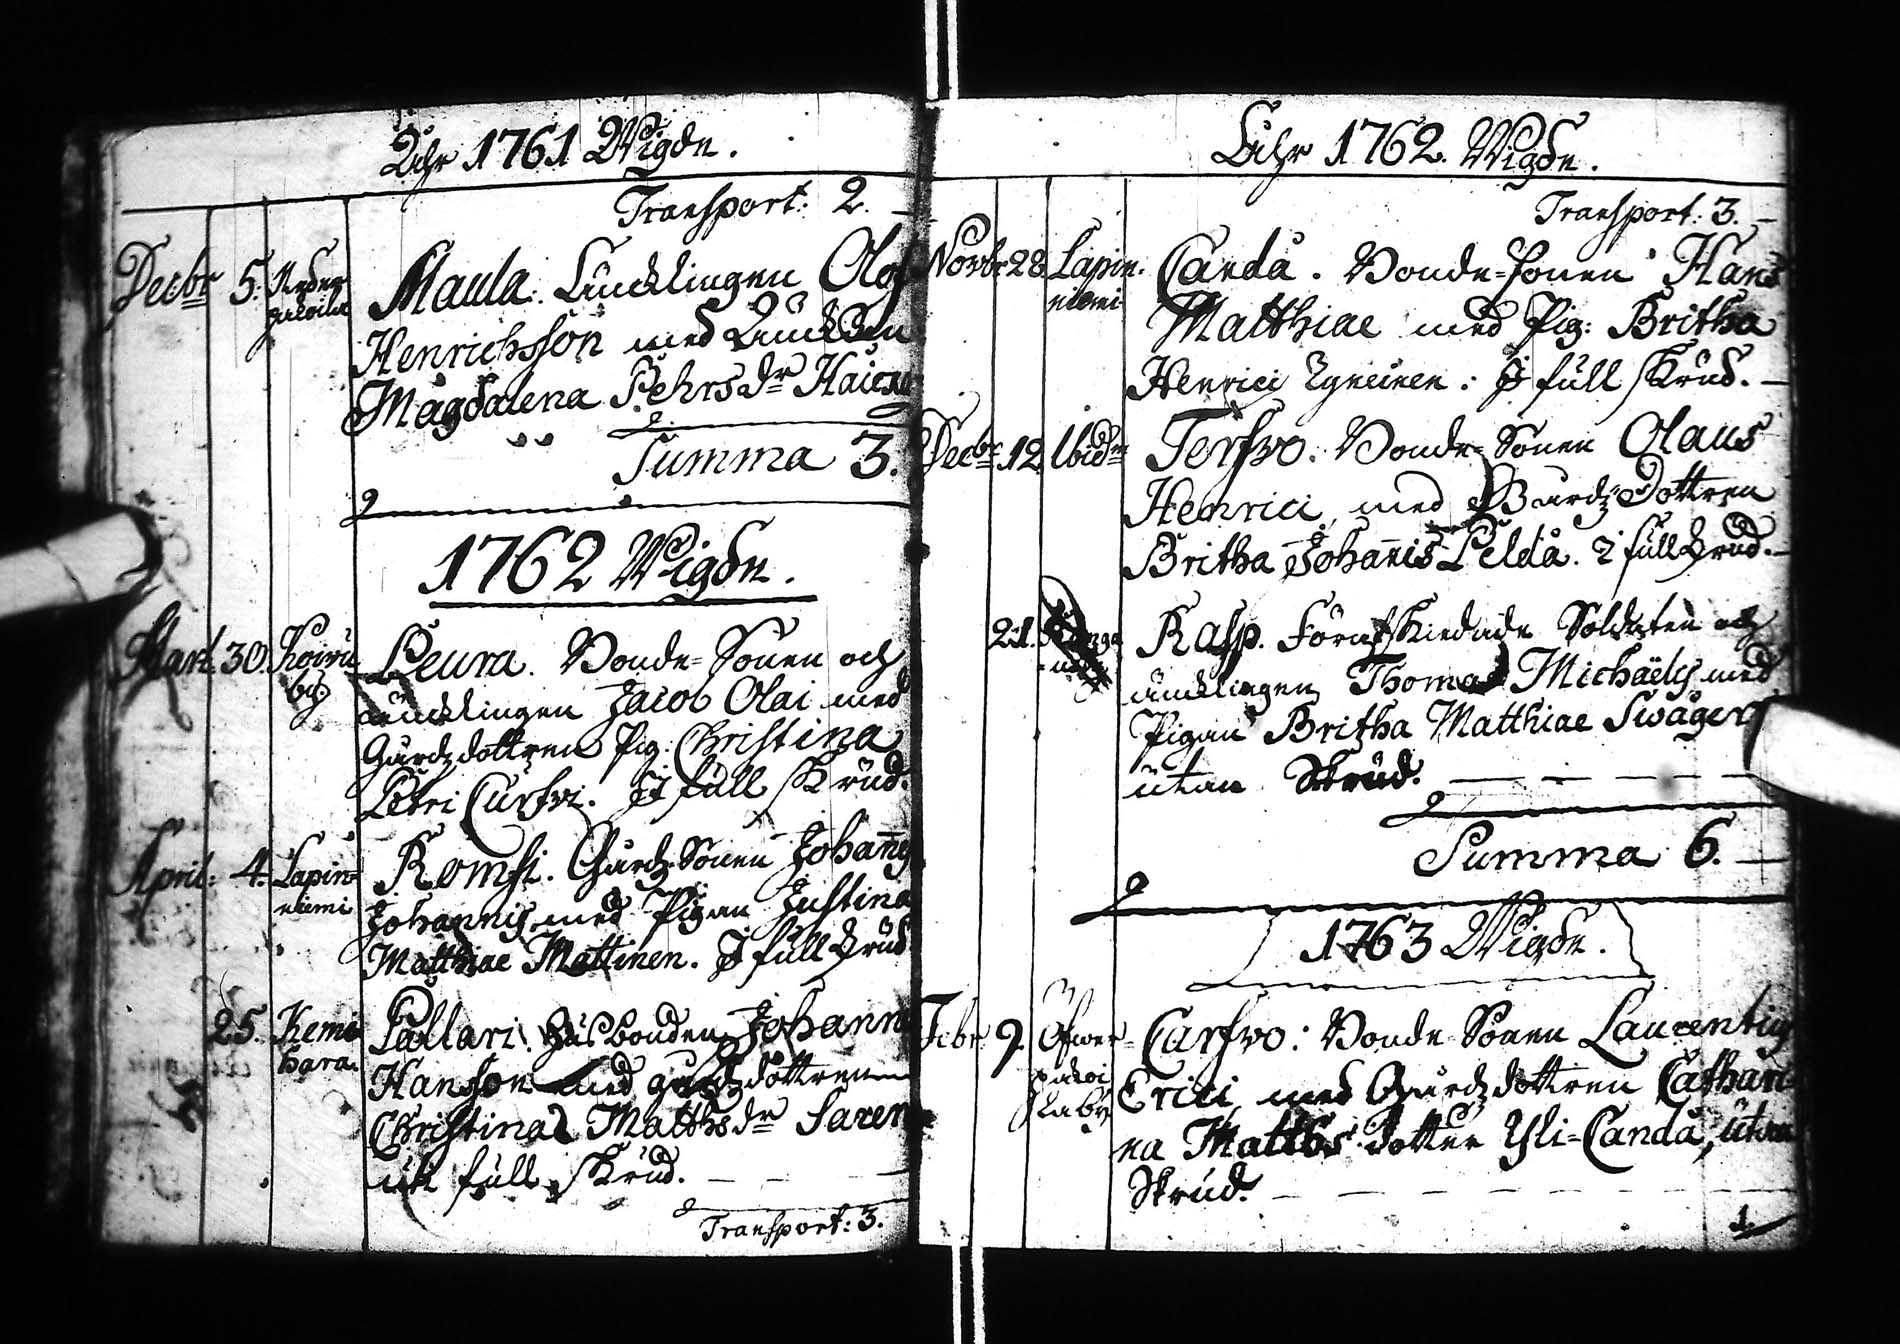 Åhr 1761 Wigde.
Transport: 2.
Decbr 5. Neder Maula. Änklingen Olof
Henrichsson med Änckan
Magdalena Pehrsdr
Summa 3.
1762 Wigde.
Mart. 30. Koivu Peura. Bonde-Sonen och
by. änklingen Jacob Olai med
Gårdzdottren Pig: Christina
Petri Curfvi. I full skrud.
April: 4. Lapin Romsi. Gårdz-Sonen Johannes
niemi Johannis med Pigan Justina
Matthiae Mattinen. I full skrud
25. Kemi Pallari. Husbonden Johann
hara. Hansson med gårdzdottren
Christina Matthsdr Saren
uti full skrud.
Transport: 3.
Åhr 1762. Wigde.
Transport: 3.
Novbr 28 Lapin- Canda. Bonde-sonen Hans
niemi Matthiae med Pig: Britha
Henrici I full skrud.
Decbr 12. Ibidm Terfvo. Bonde-Sonen Olaus
Henrici, med Gårdz Dottren
Britha Johannis Pelda. i full skrud.
21. Kanga Rasp. Förafskiedade Soldaten och
änklingen Thomas Michaëlis med
Pigan Britha Matthiae Swager
utan Skrud.
Summa 6.
1763 Wigde.
Febr 9. Öfwer- Carfvo: Bonde Sonen Laurentius
Erici, med Gårdzdottren Cathari
na Matths dotter Yli-Canda, utan
Skrud.
1.